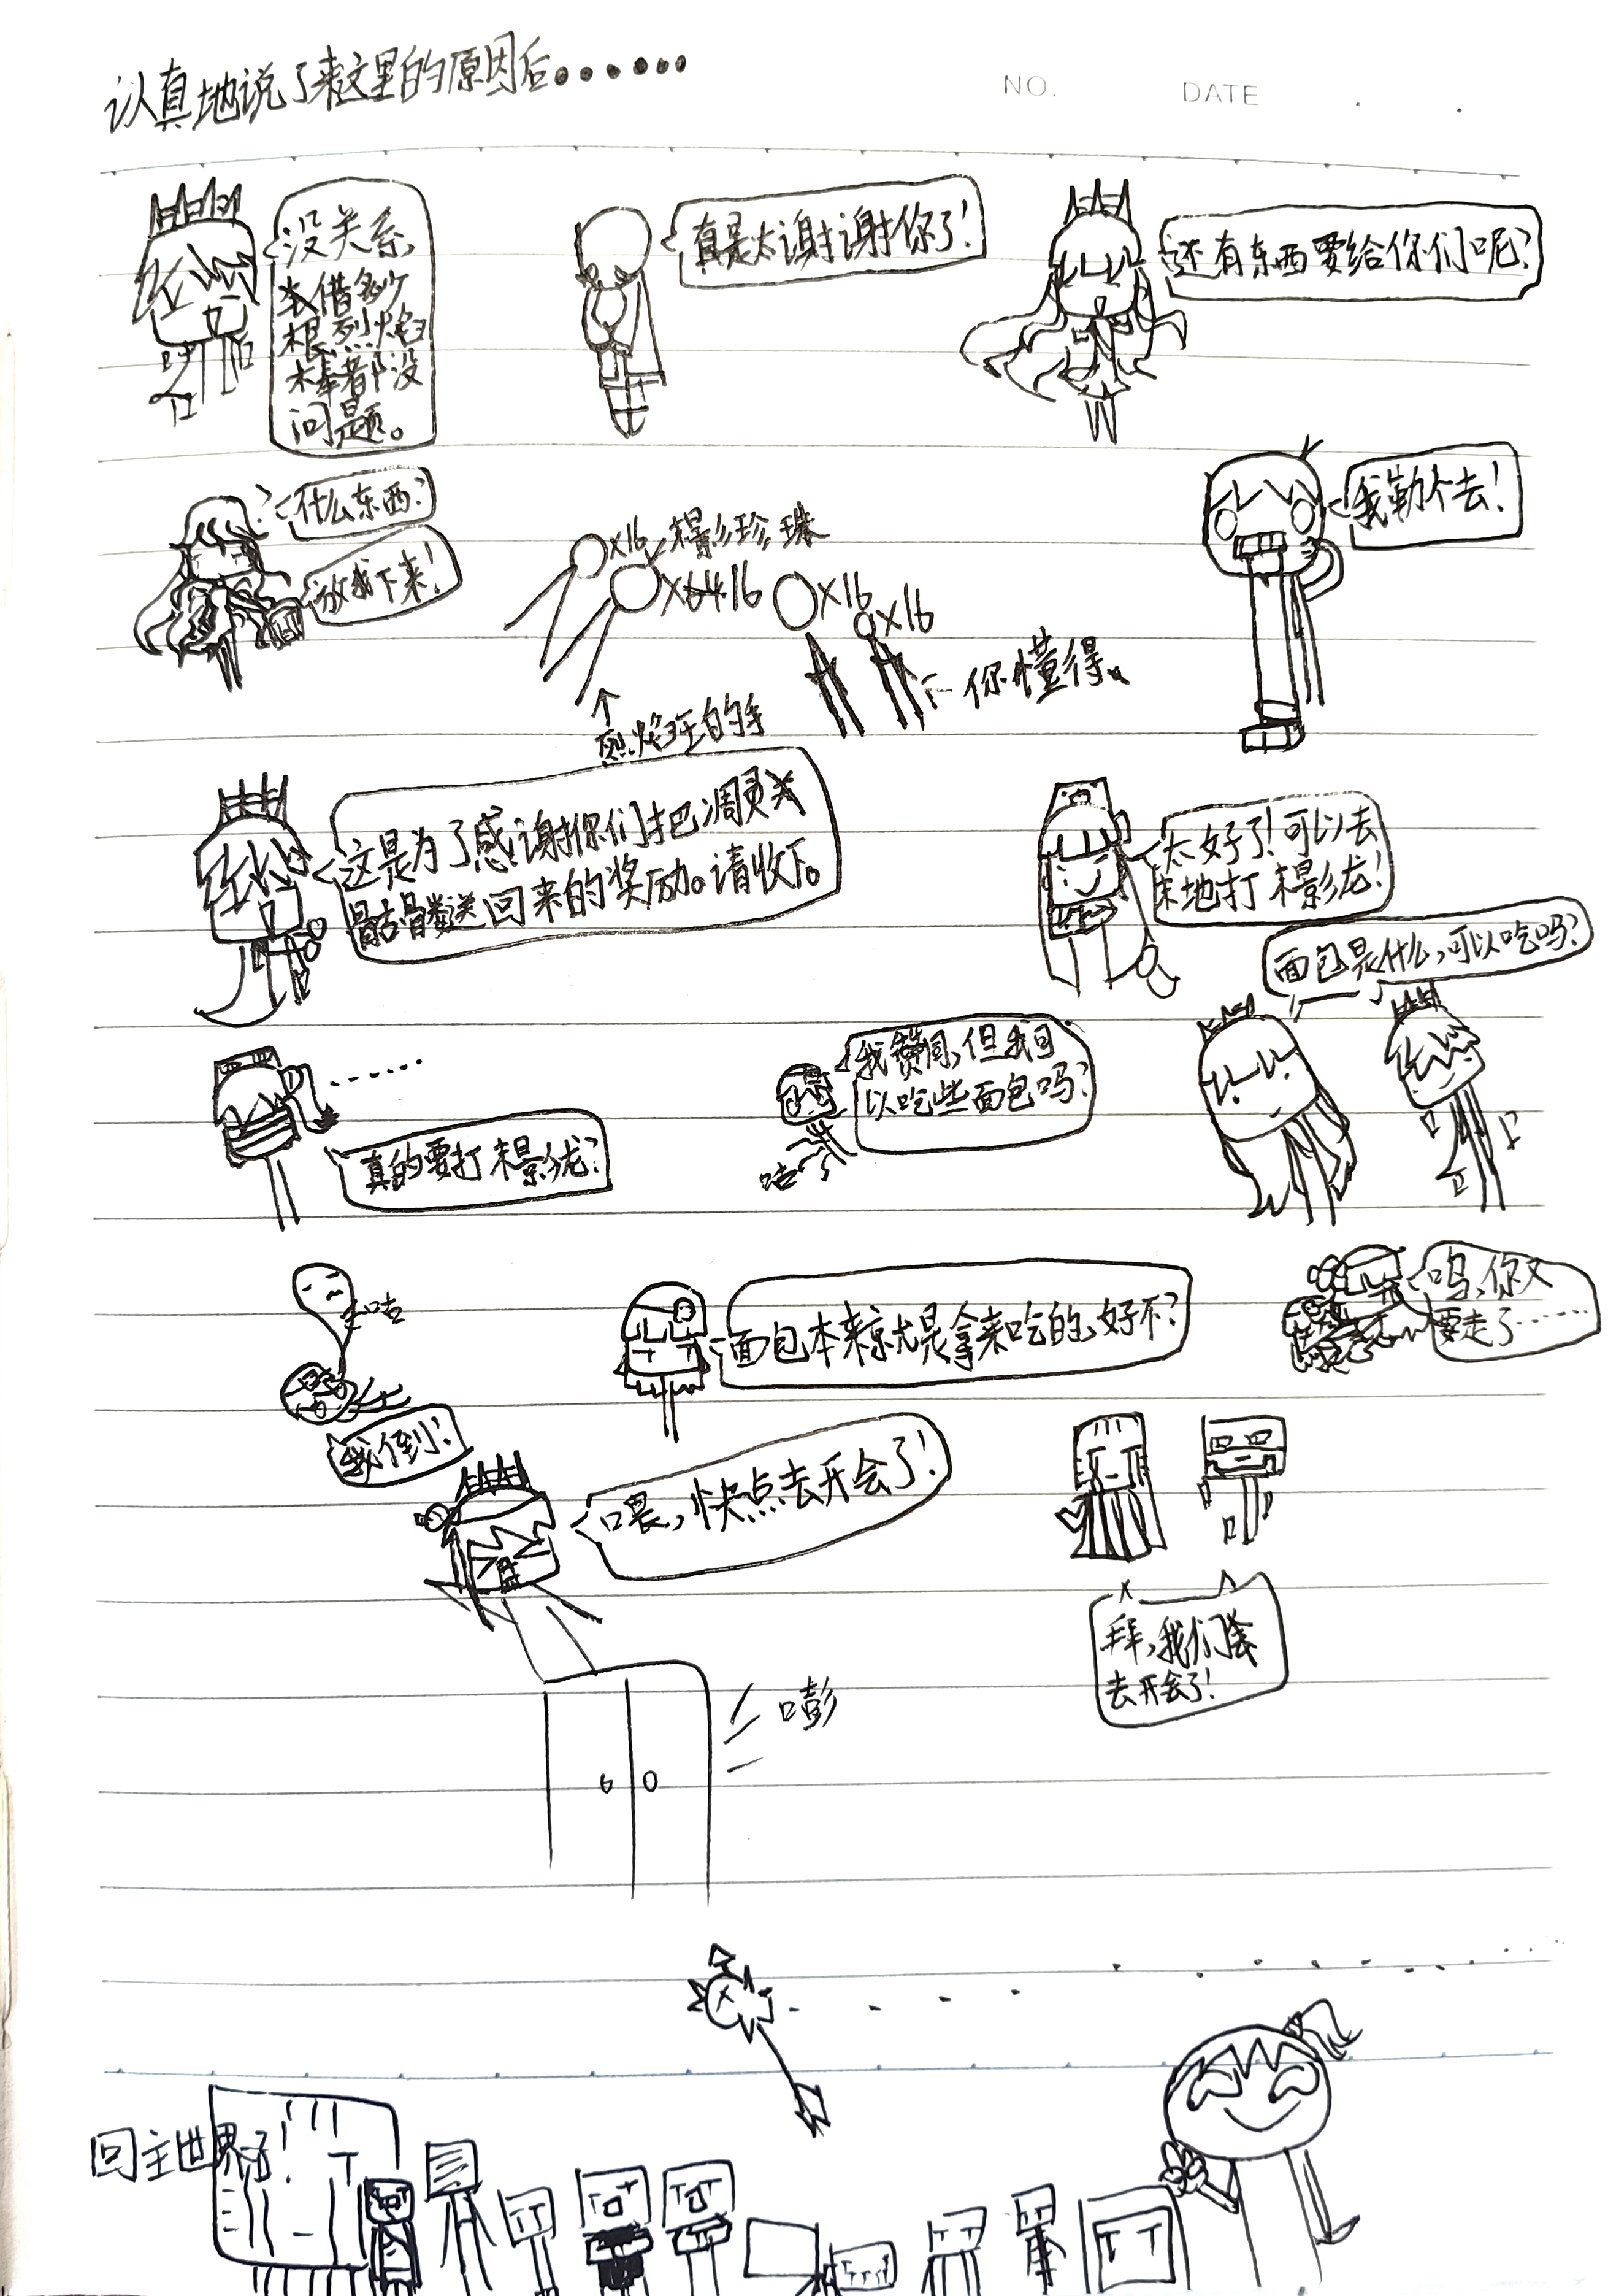 认真地说了来这里的原因后……
NO.
DATE
没关系,
借多少
根烈焰
棒都没
问题。
真是太谢谢你了!
还有东西要给你们呢?
什么东西?
放我下来!
×16
末影珍珠
×16
×16
×16
你懂得。
烈焰王的手
我勒个去!
这是为了感谢你们把凋灵
骷髅送回来的奖励。请收下。
太好了!可以去
末地打末影龙!
面包是什么,可以吃吗?
……
真的要打末影龙?
我赞同,但我可
以吃些面包吗?
咕
咕
我倒!
面包本来就是拿来吃的好不?
呜,你又
要走了……
喂,快点去开会了!
拜,我们
去开会了!
嘭
回主世界后